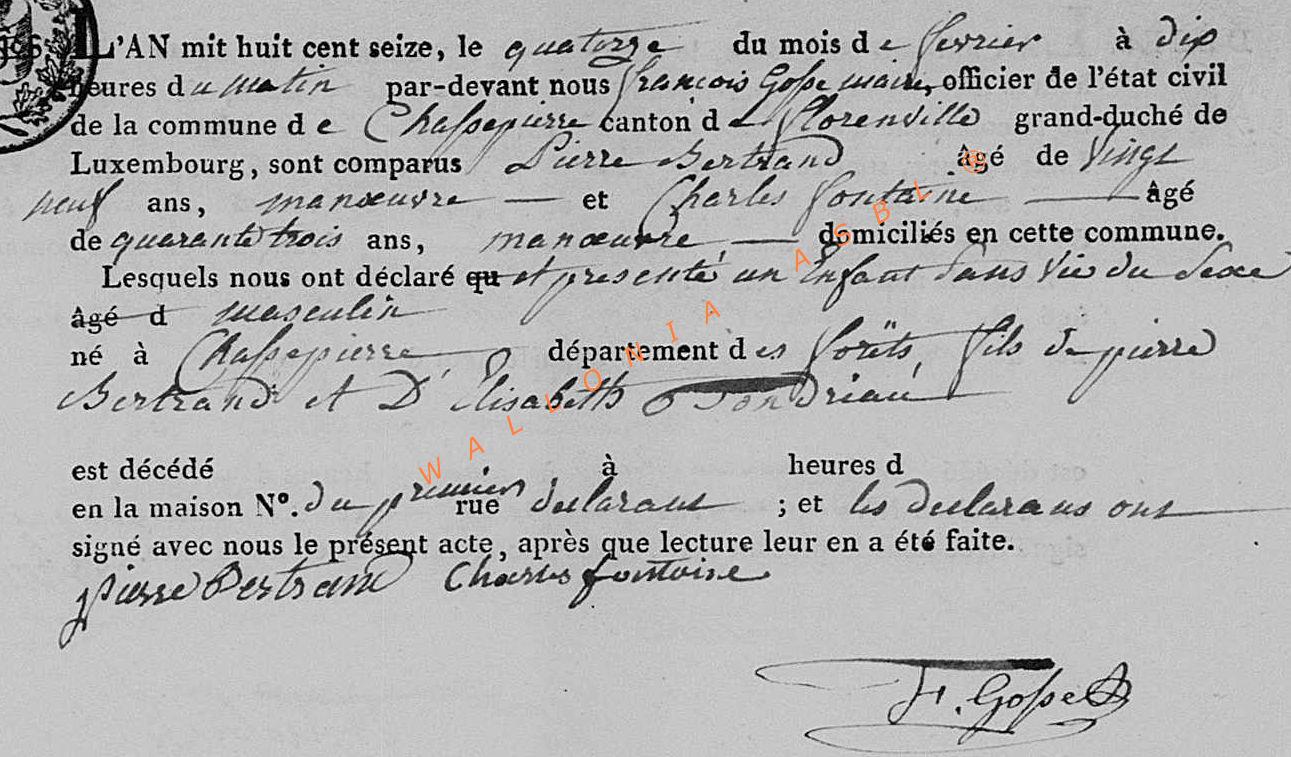 L'AN mit huit cent seize, le quatorze du mois de fevrier à dix
heures du matin par-devant nous françois Gosse maire, officier de l'état civil
de la commune de Chassepierre canton de florenville grand-duché de
Luxembourg, sont comparus Pierre Bertrand âgé de Vingt
neuf ans, manœuvre — et Charles fontaine — âgé
de quarante trois ans, manœuvre — domiciliés en cette commune.
Lesquels nous ont déclaré qu et presenté un Enfant sans Vie du Sexe
âgé d masculin
né à Chassepierre, département des forêts, fils de pierre
Bertrand et D'Elisabeth
est décédé à heures d
en la maison N°. du premier rue declarant ; et les declarans ont
signé avec nous le présent acte, après que lecture leur en a été faite.
pierre Bertrand Charles fontaine
F. Gosse
WALLONIA ASBL ®